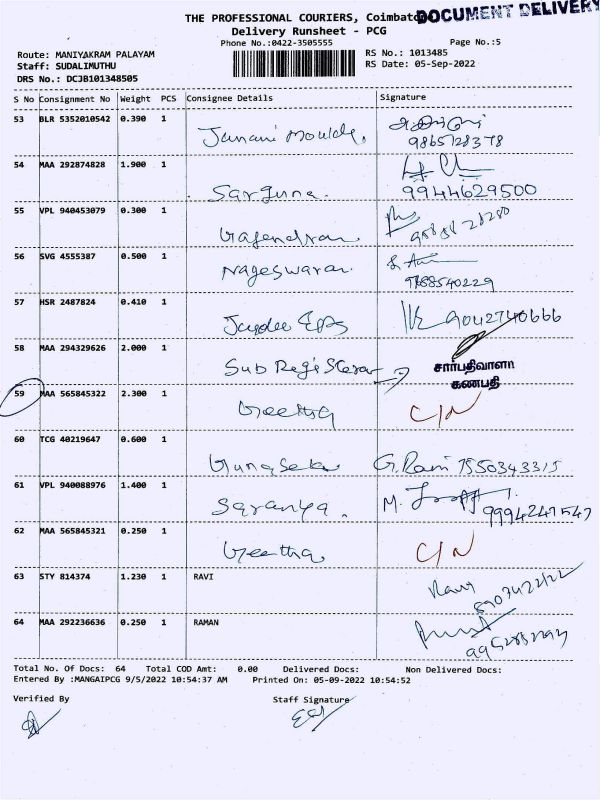 THE PROFESSIONAL COURIERS, Coimbato
DOCUMENT DELIVERY
Delivery Runsheet - PCG
Phone No.:0422-3505555
Page No.:5
Route: MANIYAKRAM PALAYAM
RS No.: 1013485
Staff: SUDALIMUTHU
RS Date: 05-Sep-2022
DRS No.: DCJB101348505
S No Consignment No Weight PCS Consignee Details Signature
53 BLR 5352010542 0.390 1 Janani Moulds. 9865728378
54 MAA 292874828 1.900 1 Sarguna. 9944629500
55 VPL 940453079 0.300 1 Gajendran
56 SVG 4555387 0.500 1 Nageswaran 9788540229
57 HSR 2487824 0.410 1 9042740666
58 MAA 294329626 2.000 1 Sub Register சார்பதிவாளர்
கணபதி
59 MAA 565845322 2.300 1 Geetha C/N
60 TCG 40219647 0.600 1 Gunasek G. Rani 7550343315
61 VPL 940088976 1.400 1 Saranya. M. 9994247547
62 MAA 565845321 0.250 1 Geetha C/N
63 STY 814374 1.230 1 RAVI Ravi
64 MAA 292236636 0.250 1 RAMAN
Total No. Of Docs: 64 Total COD Amt: 0.00 Delivered Docs: Non Delivered Docs:
Entered By :MANGAIPCG 9/5/2022 10:54:37 AM Printed On: 05-09-2022 10:54:52
Verified By Staff Signature